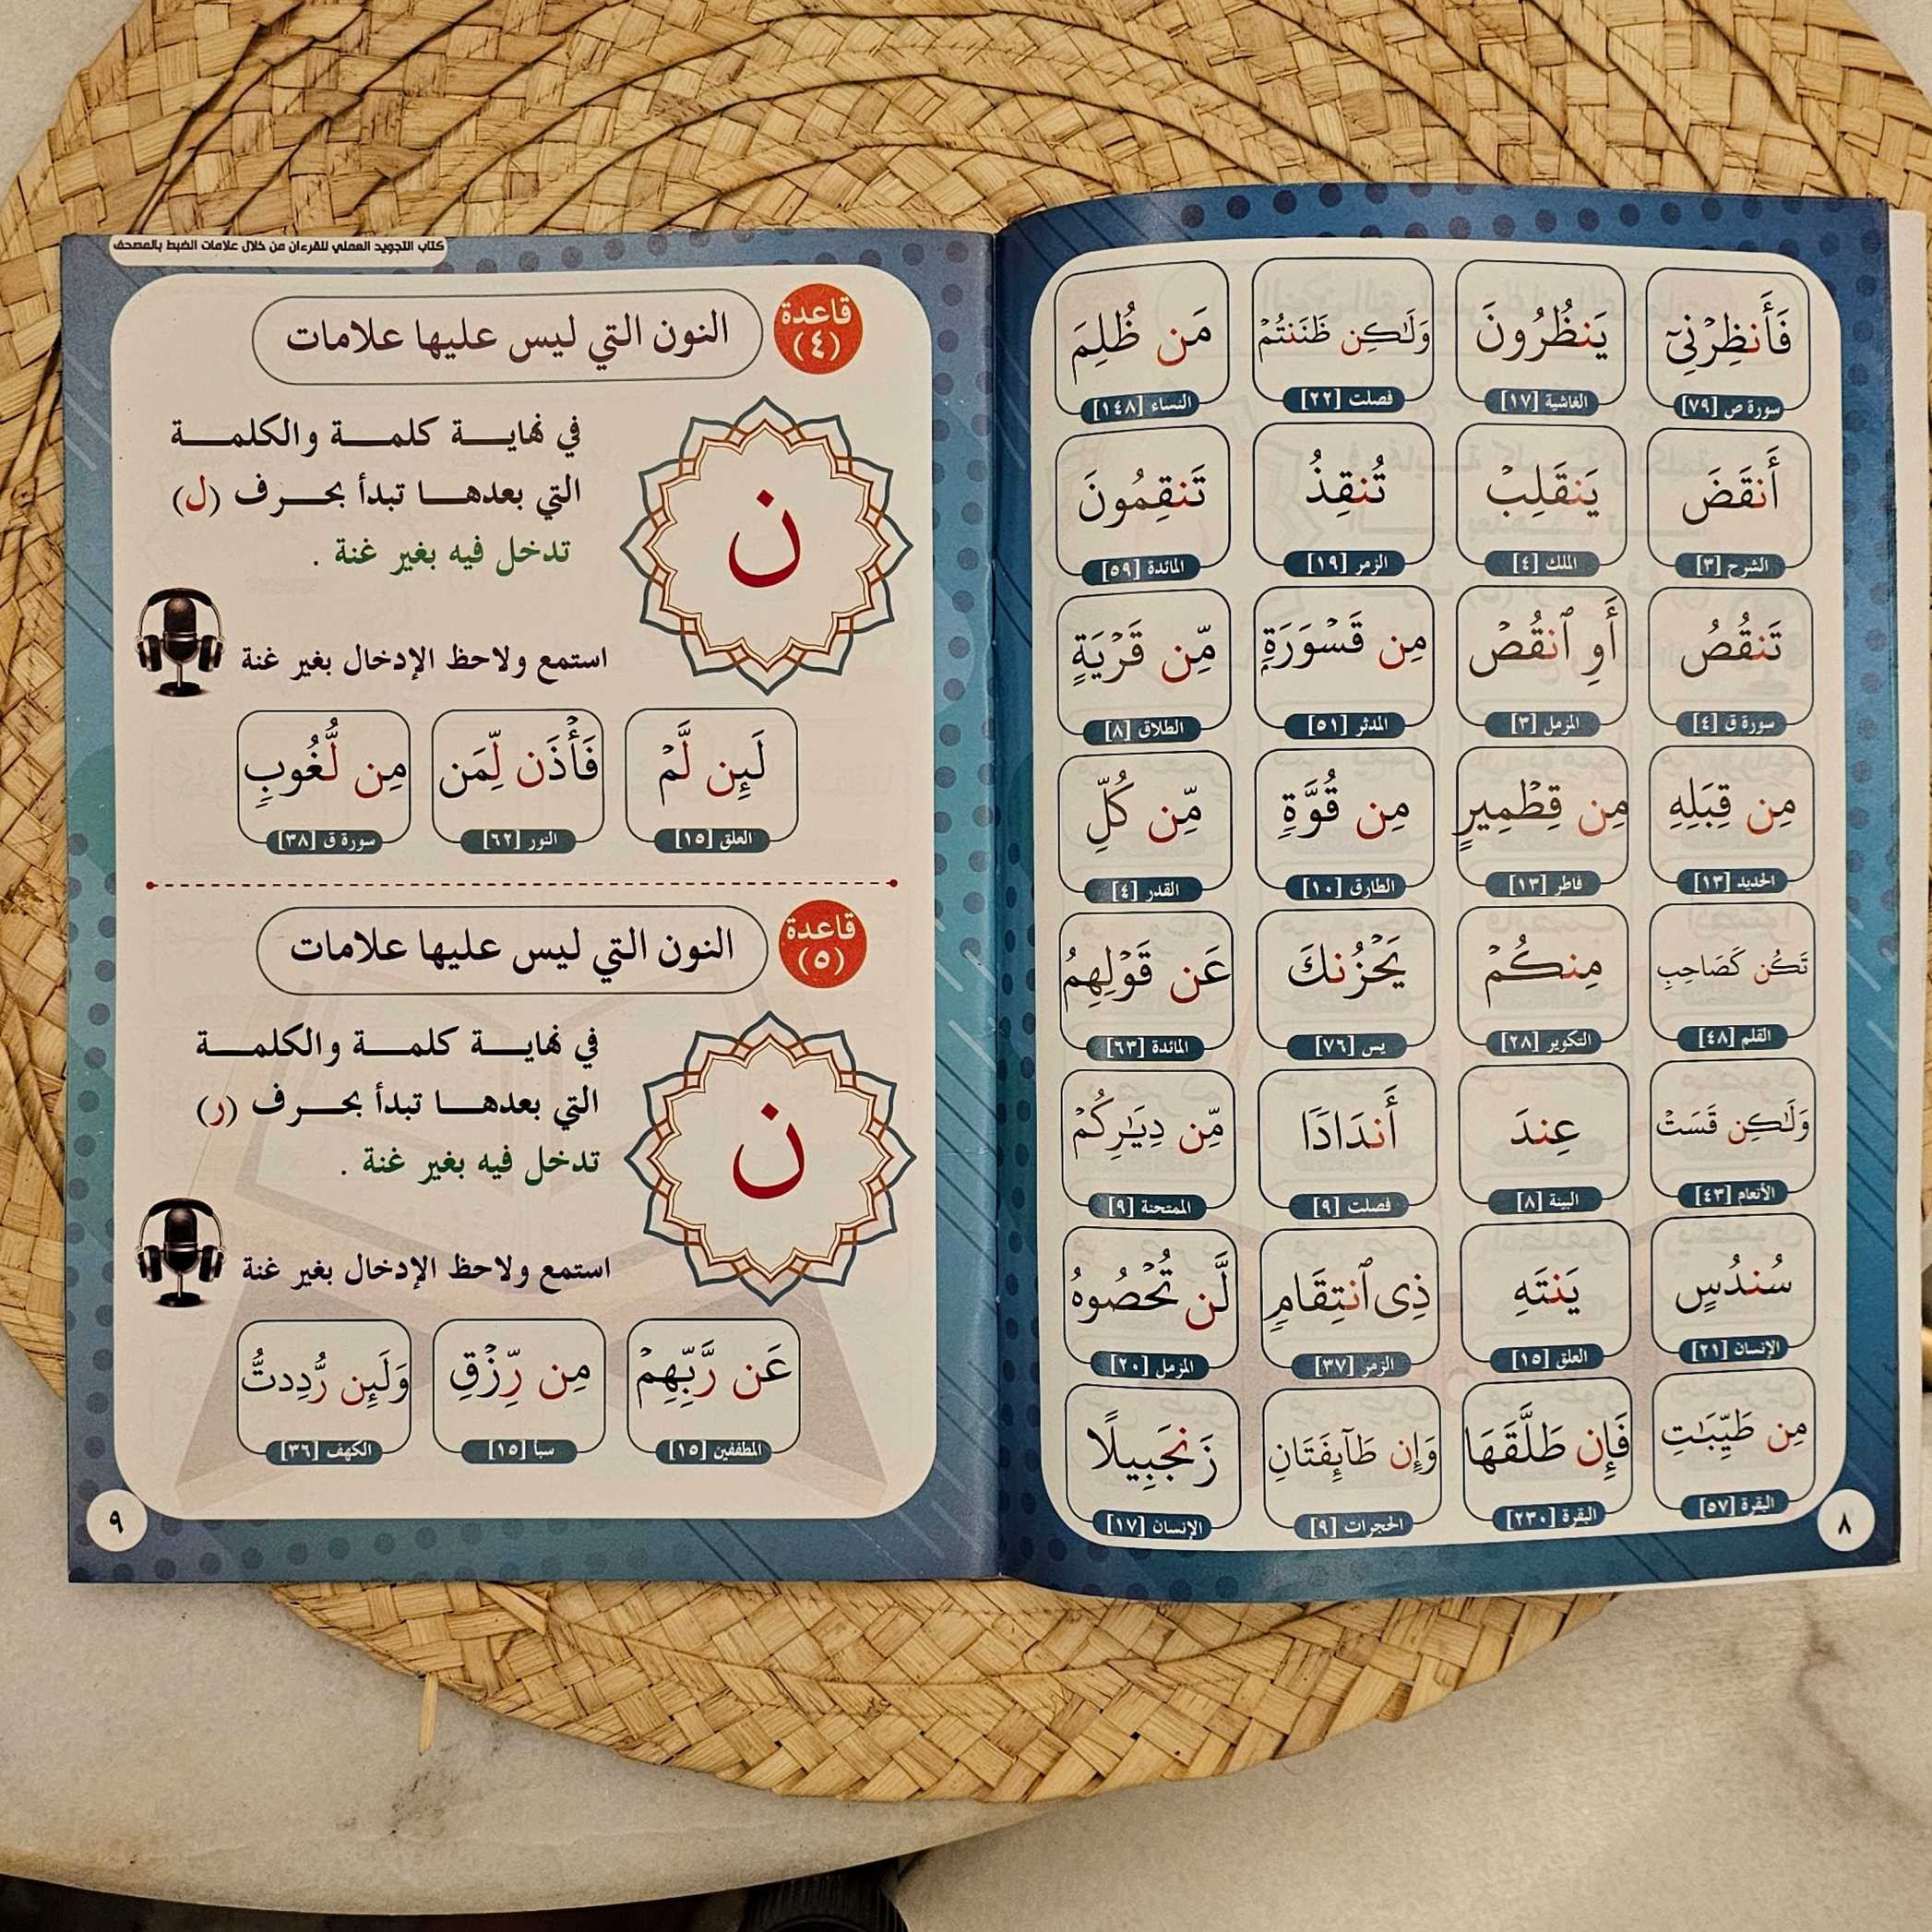 فَأَنظِرْنِىٓ يَنظُرُونَ وَلَٰكِن ظَنَنتُمْ مَن ظُلِمَ
سورة ص [٧٩] الغاشية [١٧] فصلت [٢٢] النساء [١٤٨]
أَنقَضَ يَنقَلِبْ تُنقِذُ تَنقِمُونَ
الشرح [٣] الملك [٤] الزمر [١٩] المائدة [٥٩]
تَنقُصُ أَوِ ٱنقُصْ مِن قَسْوَرَةٍۭ مِّن قَرْيَةٍ
سورة ق [٤] المزمل [٣] المدثر [٥١] الطلاق [٨]
مِن قِبَلِهِ مِن قِطْمِيرٍ مِن قُوَّةٍ مِّن كُلِّ
الحديد [١٣] فاطر [١٣] الطارق [١٠] القدر [٤]
تَكُن كَصَاحِبِ مِنكُمْ يَحْزُنكَ عَن قَوْلِهِمُ
القلم [٤٨] التكوير [٢٨] يس [٧٦] المائدة [٦٣]
وَلَٰكِن قَسَتْ عِندَ أَندَادًا مِّن دِيَٰرِكُمْ
الأنعام [٤٣] البينة [٨] فصلت [٩] الممتحنة [٩]
سُندُسٍ يَنتَهِ ذِى ٱنتِقَامٍ لَّن تُحْصُوهُ
الإنسان [٢١] العلق [١٥] الزمر [٣٧] المزمل [٢٠]
مِن طَيِّبَٰتِ فَإِن طَلَّقَهَا وَإِن طَآئِفَتَانِ زَنجَبِيلًا
البقرة [٥٧] البقرة [٢٣٠] الحجرات [٩] الإنسان [١٧]
٨
كتاب التجويد العملي للقرءان من خلال علامات الضبط بالمصحف
قاعدة
(٤)
النون التي ليس عليها علامات
ن
في نهاية كلمة والكلمة
التي بعدها تبدأ بحرف (ل)
تدخل فيه بغير غنة .
استمع ولاحظ الإدخال بغير غنة
لَئِن لَّمْ فَأْذَن لِّمَن مِن لُّغُوبٍ
العلق [١٥] النور [٦٢] سورة ق [٣٨]
قاعدة
(٥)
النون التي ليس عليها علامات
ن
في نهاية كلمة والكلمة
التي بعدها تبدأ بحرف (ر)
تدخل فيه بغير غنة .
استمع ولاحظ الإدخال بغير غنة
عَن رَّبِّهِمْ مِن رِّزْقِ وَلَئِن رُّدِدتُّ
المطففين [١٥] سبأ [١٥] الكهف [٣٦]
٩